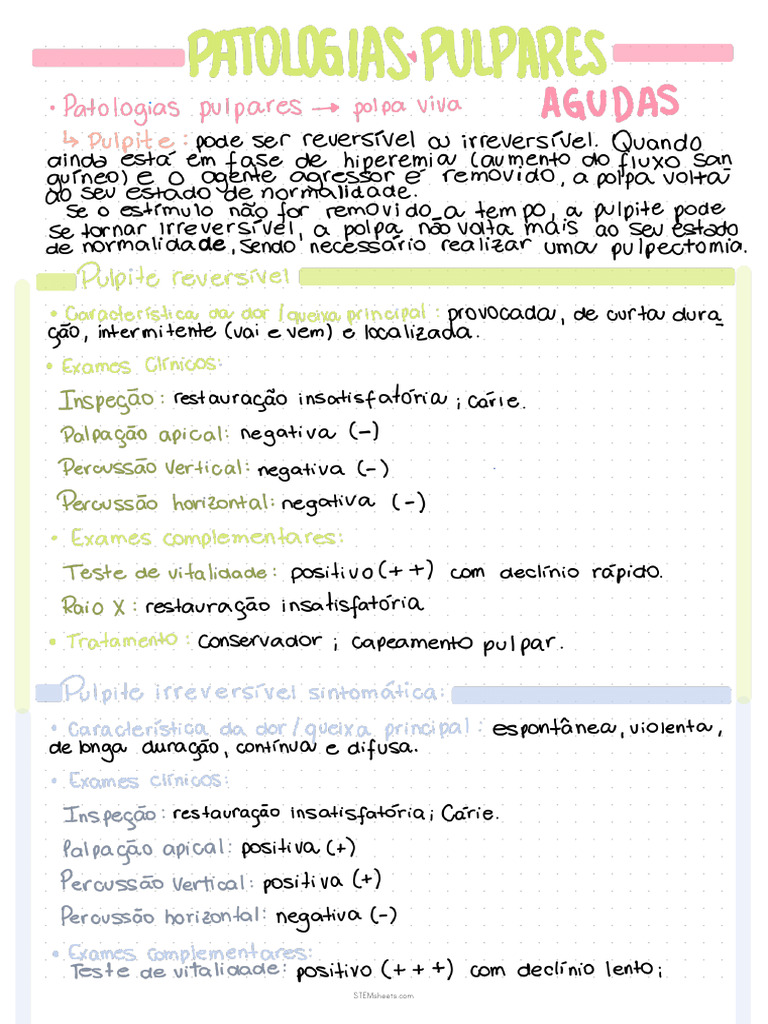 PATOLOGIAS PULPARES
• Patologias pulpares → polpa viva AGUDAS
↳ Pulpite: pode ser reversível ou irreversível. Quando
ainda está em fase de hiperemia (aumento do fluxo san
guíneo) e o agente agressor é removido, a polpa volta
ao seu estado de normalidade.
Se o estímulo não for removido a tempo, a pulpite pode
se tornar irreversível, a polpa não volta mais ao seu estado
de normalidade, sendo necessário realizar uma pulpectomia.
Pulpite reversível
• Característica da dor/queixa principal: provocada, de curta dura_
ção, intermitente (vai e vem) e localizada.
• Exames Clínicos:
Inspeção: restauração insatisfatória; cárie.
Palpação apical: negativa (-)
Percussão vertical: negativa (-)
Percussão horizontal: negativa (-)
• Exames complementares:
Teste de vitalidade: positivo (++) com declínio rápido.
Raio X: restauração insatisfatória
• Tratamento: conservador; capeamento pulpar.
Pulpite irreversível sintomática:
• Característica da dor/queixa principal: espontânea, violenta,
de longa duração, contínua e difusa.
• Exames clínicos:
Inspeção: restauração insatisfatória; Cárie.
Palpação apical: positiva (+)
Percussão vertical: positiva (+)
Percussão horizontal: negativa (-)
• Exames complementares:
Teste de vitalidade: positivo (+++) com declínio lento;
STEMsheets.com